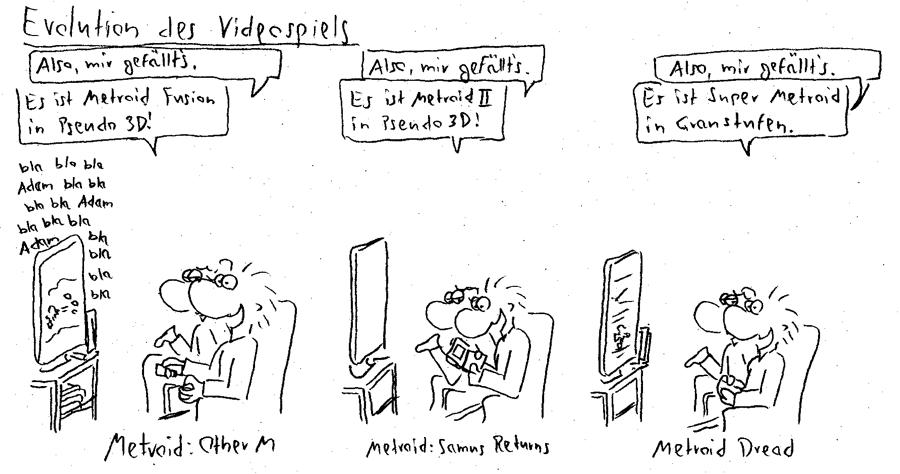 Evolution des Videospiels
Also, mir gefällt's.
Es ist Metroid Fusion
in Pseudo 3D!
bla bla bla
Adam bla bla
bla bla Adam
bla bla bla
Adam bla
bla
bla
bla
Metroid: Other M
Also, mir gefällt's.
Es ist Metroid II
in Pseudo 3D!
Metroid: Samus Returns
Also, mir gefällt's.
Es ist Super Metroid
in Graustufen.
Metroid Dread